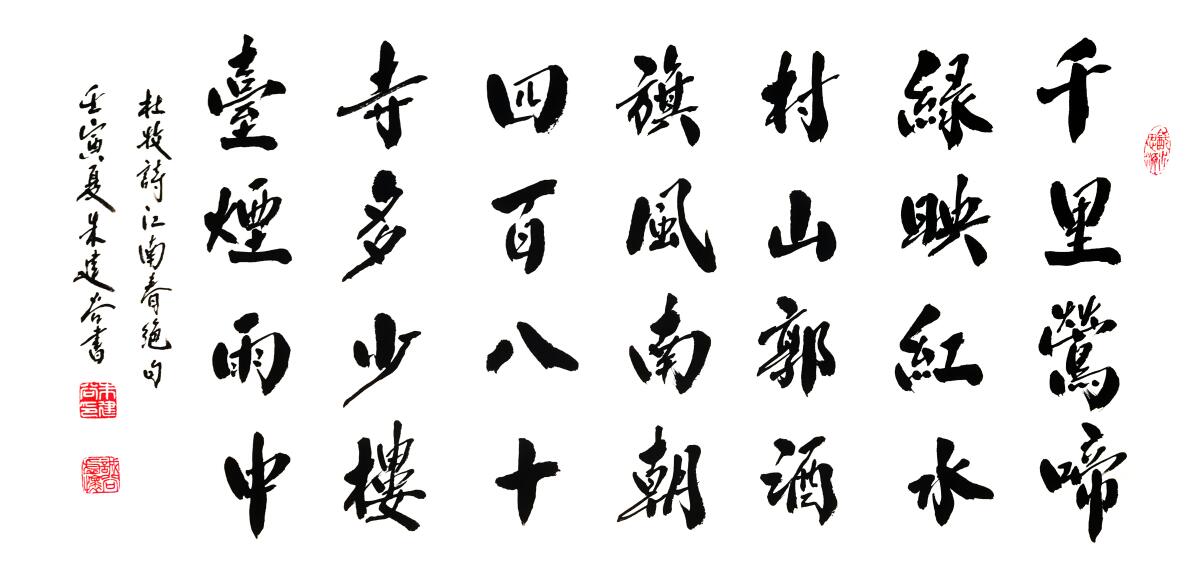 千里鶯啼
緑映紅水
村山郭酒
旗風南朝
四百八十
寺多少樓
臺煙雨中
杜牧詩江南春絶句
壬寅夏朱建書